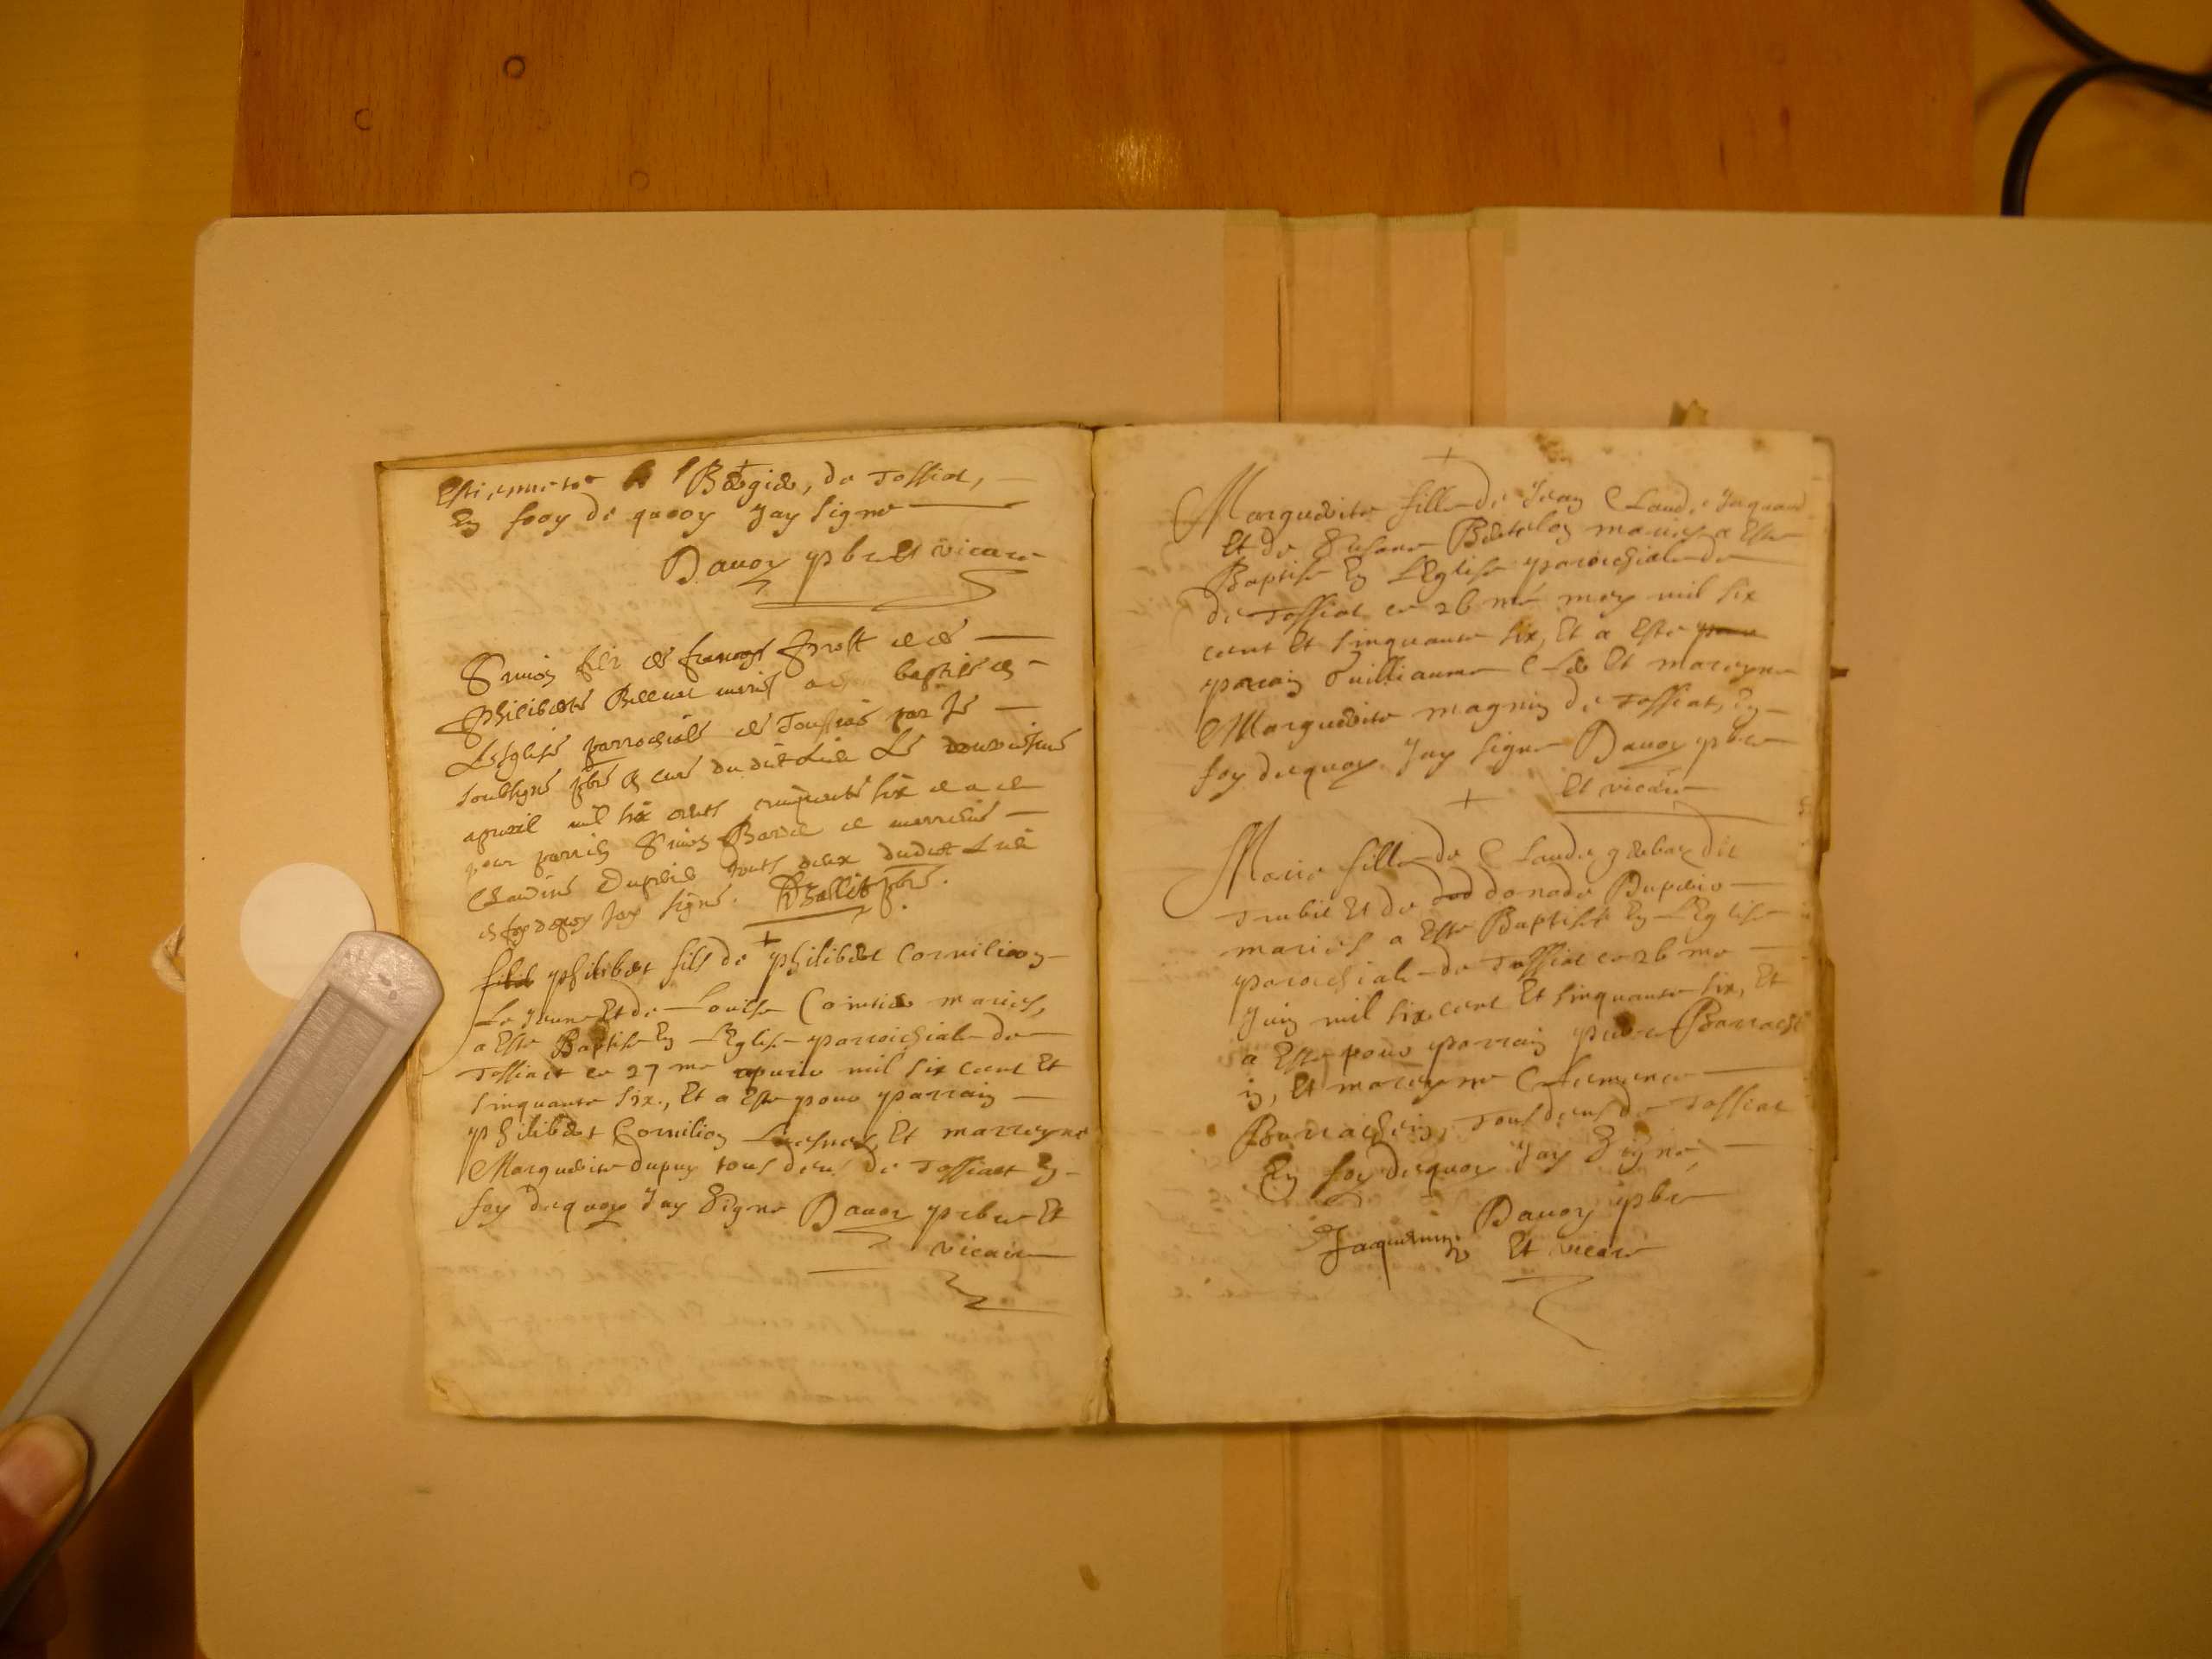 Estiennette Bergier, de Tossiat,
En fooy de quooy Jay signe
Dauoy pbre et vicaire
Simon filz de françoys prost et de
philiberte mariés a esté baptisé en
Lesglise parrochiale de Toussiat par je
soubsigné pbre et curé dudit Lieu Le
apvril mil six cents cinquante six et a eu
pour parrin Simon et marrine
Claudine Duprier touts deux dudict Lieu
en foy de quoy Jay signé. pbre.
philibert fils de philibert Cornilion
Le Jeune Et de Louise mariés,
a Este Baptise En LEglise parroichiale de
Tossiat ce 27 me apuril mil six cent Et
sinquante six, Et a Este pour parrain
philibert Cornilion Et marreyne
Marguerite dupuy tous deus de Tossiat En
foy dequoy Jay Signe Dauoy prebre Et
vicaire
Marguerite fille de Jean Claude Jaquand
Et de Susane Bertelon mariés a Este
Baptise En LEglise paroichiale de
de Tossiat ce 26 me may mil six
cent Et sinquante six, Et a Este
parain Guilliaume Et mareyne
Marguerite magnin de Tossiat, En
foy dequoy Jay signe Dauoy pbre
Et vicaire
Marie fille de Claude dit
Trubit Et de donade Duprier
mariés a Este Baptise En LEglise
paroichiale de Tossiat ce 26 me
Juin mil six cent Et sinquante six, Et
a Este pour parrain pierre
Et mareyne Clemence
tous deus de Tossiat
En foy dequoy Jay Signe,
Dauoy pbre
Et vicaire